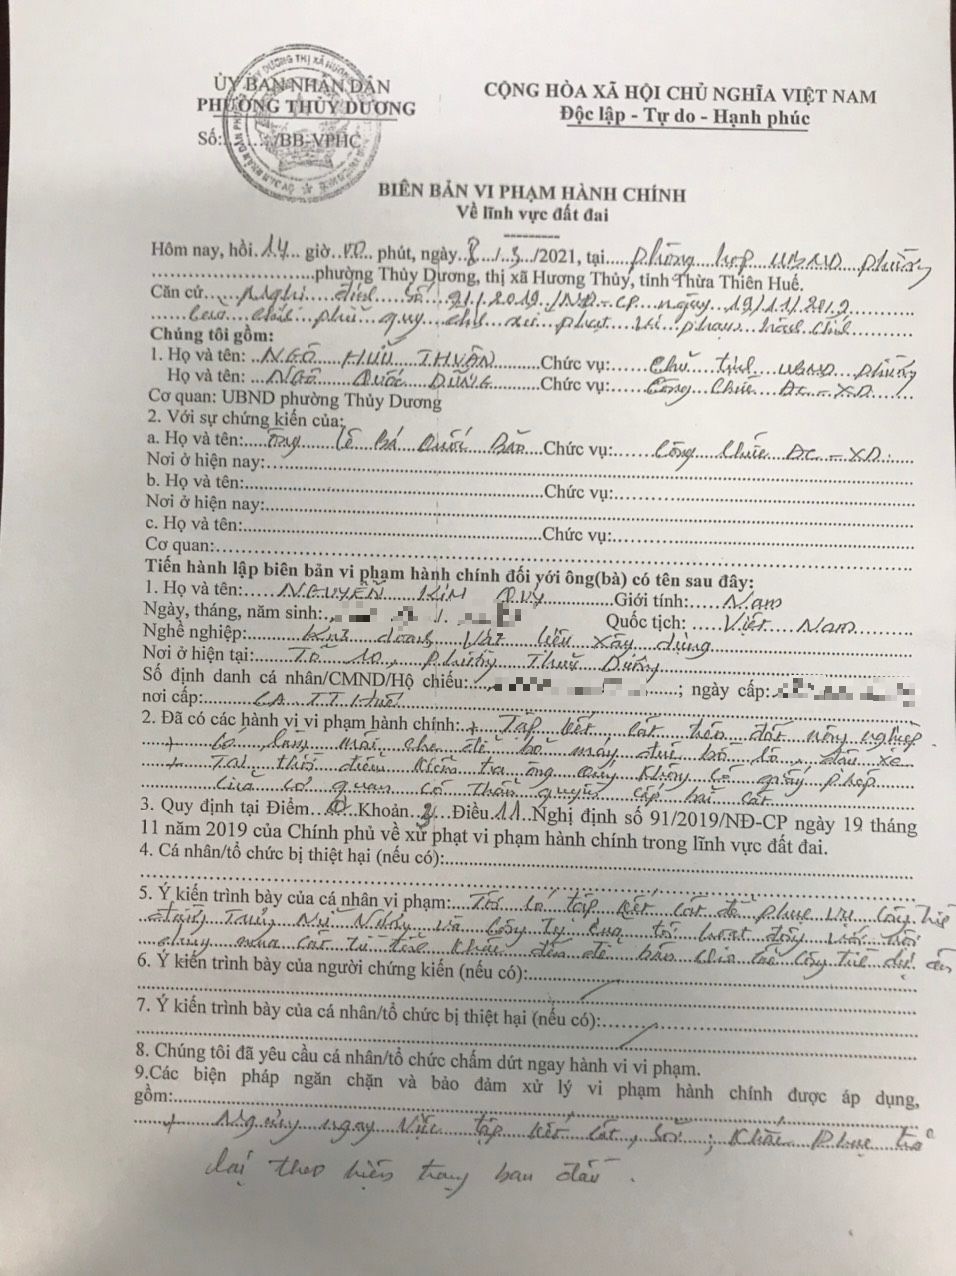 ỦY BAN NHÂN DÂN
PHƯỜNG THỦY DƯƠNG
Số:......../BB-VPHC
CỘNG HÒA XÃ HỘI CHỦ NGHĨA VIỆT NAM
Độc lập - Tự do - Hạnh phúc
BIÊN BẢN VI PHẠM HÀNH CHÍNH
Về lĩnh vực đất đai
Hôm nay, hồi 14 giờ 00 phút, ngày 8/3/2021, tại phòng họp UBND phường
phường Thủy Dương, thị xã Hương Thủy, tỉnh Thừa Thiên Huế.
Căn cứ Nghị định số 91/2019/NĐ-CP ngày 19/11/2019
của chính phủ quy định xử phạt vi phạm hành chính
Chúng tôi gồm:
1. Họ và tên: NGÔ HỮU THUẬN Chức vụ: Chủ tịch UBND phường
Họ và tên: NGÔ QUỐC DŨNG Chức vụ: Công chức ĐC-XD
Cơ quan: UBND phường Thủy Dương
2. Với sự chứng kiến của:
a. Họ và tên: Ông Lê Bá Quốc Bảo Chức vụ: Công chức ĐC-XD
Nơi ở hiện nay:
b. Họ và tên: Chức vụ:
Nơi ở hiện nay:
c. Họ và tên: Chức vụ:
Cơ quan:
Tiến hành lập biên bản vi phạm hành chính đối với ông(bà) có tên sau đây:
1. Họ và tên: NGUYỄN KIM QUY Giới tính: Nam
Ngày, tháng, năm sinh: Quốc tịch: Việt Nam
Nghề nghiệp: Kinh doanh vật liệu xây dựng
Nơi ở hiện tại: Tổ 10, phường Thủy Dương
Số định danh cá nhân/CMND/Hộ chiếu: ; ngày cấp:
nơi cấp: CA TT Huế
2. Đã có các hành vi vi phạm hành chính: + Tập kết cát trên đất nông nghiệp.
+ Có làm mái che để bỏ máy đúc bờ lô, đậu xe
+ Tại thời điểm kiểm tra ông Quy không có giấy phép
của cơ quan có thẩm quyền cấp bãi cát
3. Quy định tại Điểm Khoản 3 Điều 11 Nghị định số 91/2019/NĐ-CP ngày 19 tháng
11 năm 2019 của Chính phủ về xử phạt vi phạm hành chính trong lĩnh vực đất đai.
4. Cá nhân/tổ chức bị thiệt hại (nếu có):
5. Ý kiến trình bày của cá nhân vi phạm: Tôi có tập kết cát để phục vụ
và công ty của tôi hoạt động
mua cát từ khác đến để bán cho các công trình dự án
6. Ý kiến trình bày của người chứng kiến (nếu có):
7. Ý kiến trình bày của cá nhân/tổ chức bị thiệt hại (nếu có):
8. Chúng tôi đã yêu cầu cá nhân/tổ chức chấm dứt ngay hành vi vi phạm.
9.Các biện pháp ngăn chặn và bảo đảm xử lý vi phạm hành chính được áp dụng,
gồm:
+ Ngừng ngay việc tập kết cát, sỏi; Khắc phục trở
lại theo hiện trạng ban đầu.